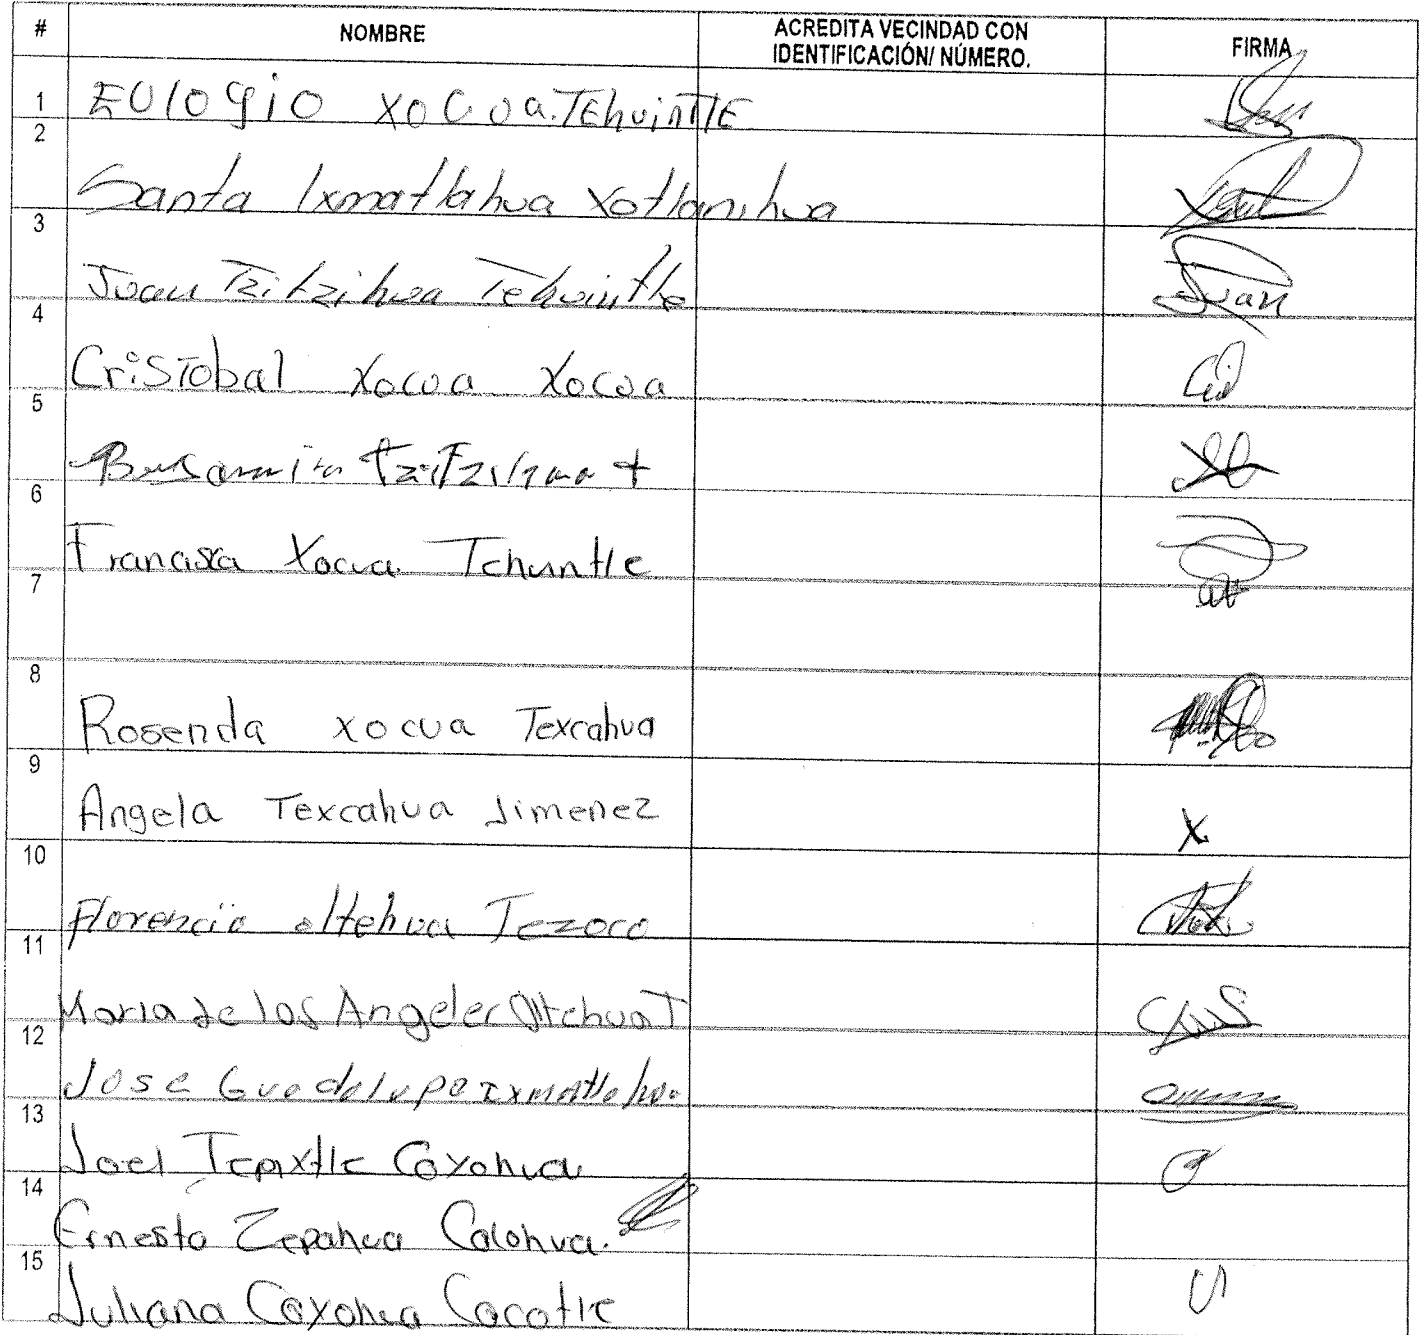 # NOMBRE ACREDITA VECINDAD CON IDENTIFICACIÓN/ NÚMERO. FIRMA
1 EUlOgiO XOCUa. TEhuinTlE
2 Santa Ixmatlahua Xotlanihua
3 Juan Tzitzihua Tehuintle Juan
4 CriSTobal Xocua Xocua
5
6 Francisca Xocua Tehuntle
7
8 Rosenda xocua Texcahua
9 Angela Texcahua Jimenez X
10 Florencio oltehua Tezoco
11 Maria de los Angeles Oltehua T
12 Jose Guadalupe Ixmatlahua
13 Joel Tepixtle Coxohua
14 Ernesto Zepahua Calohua.
15 Juliana Coxohua Cocotle